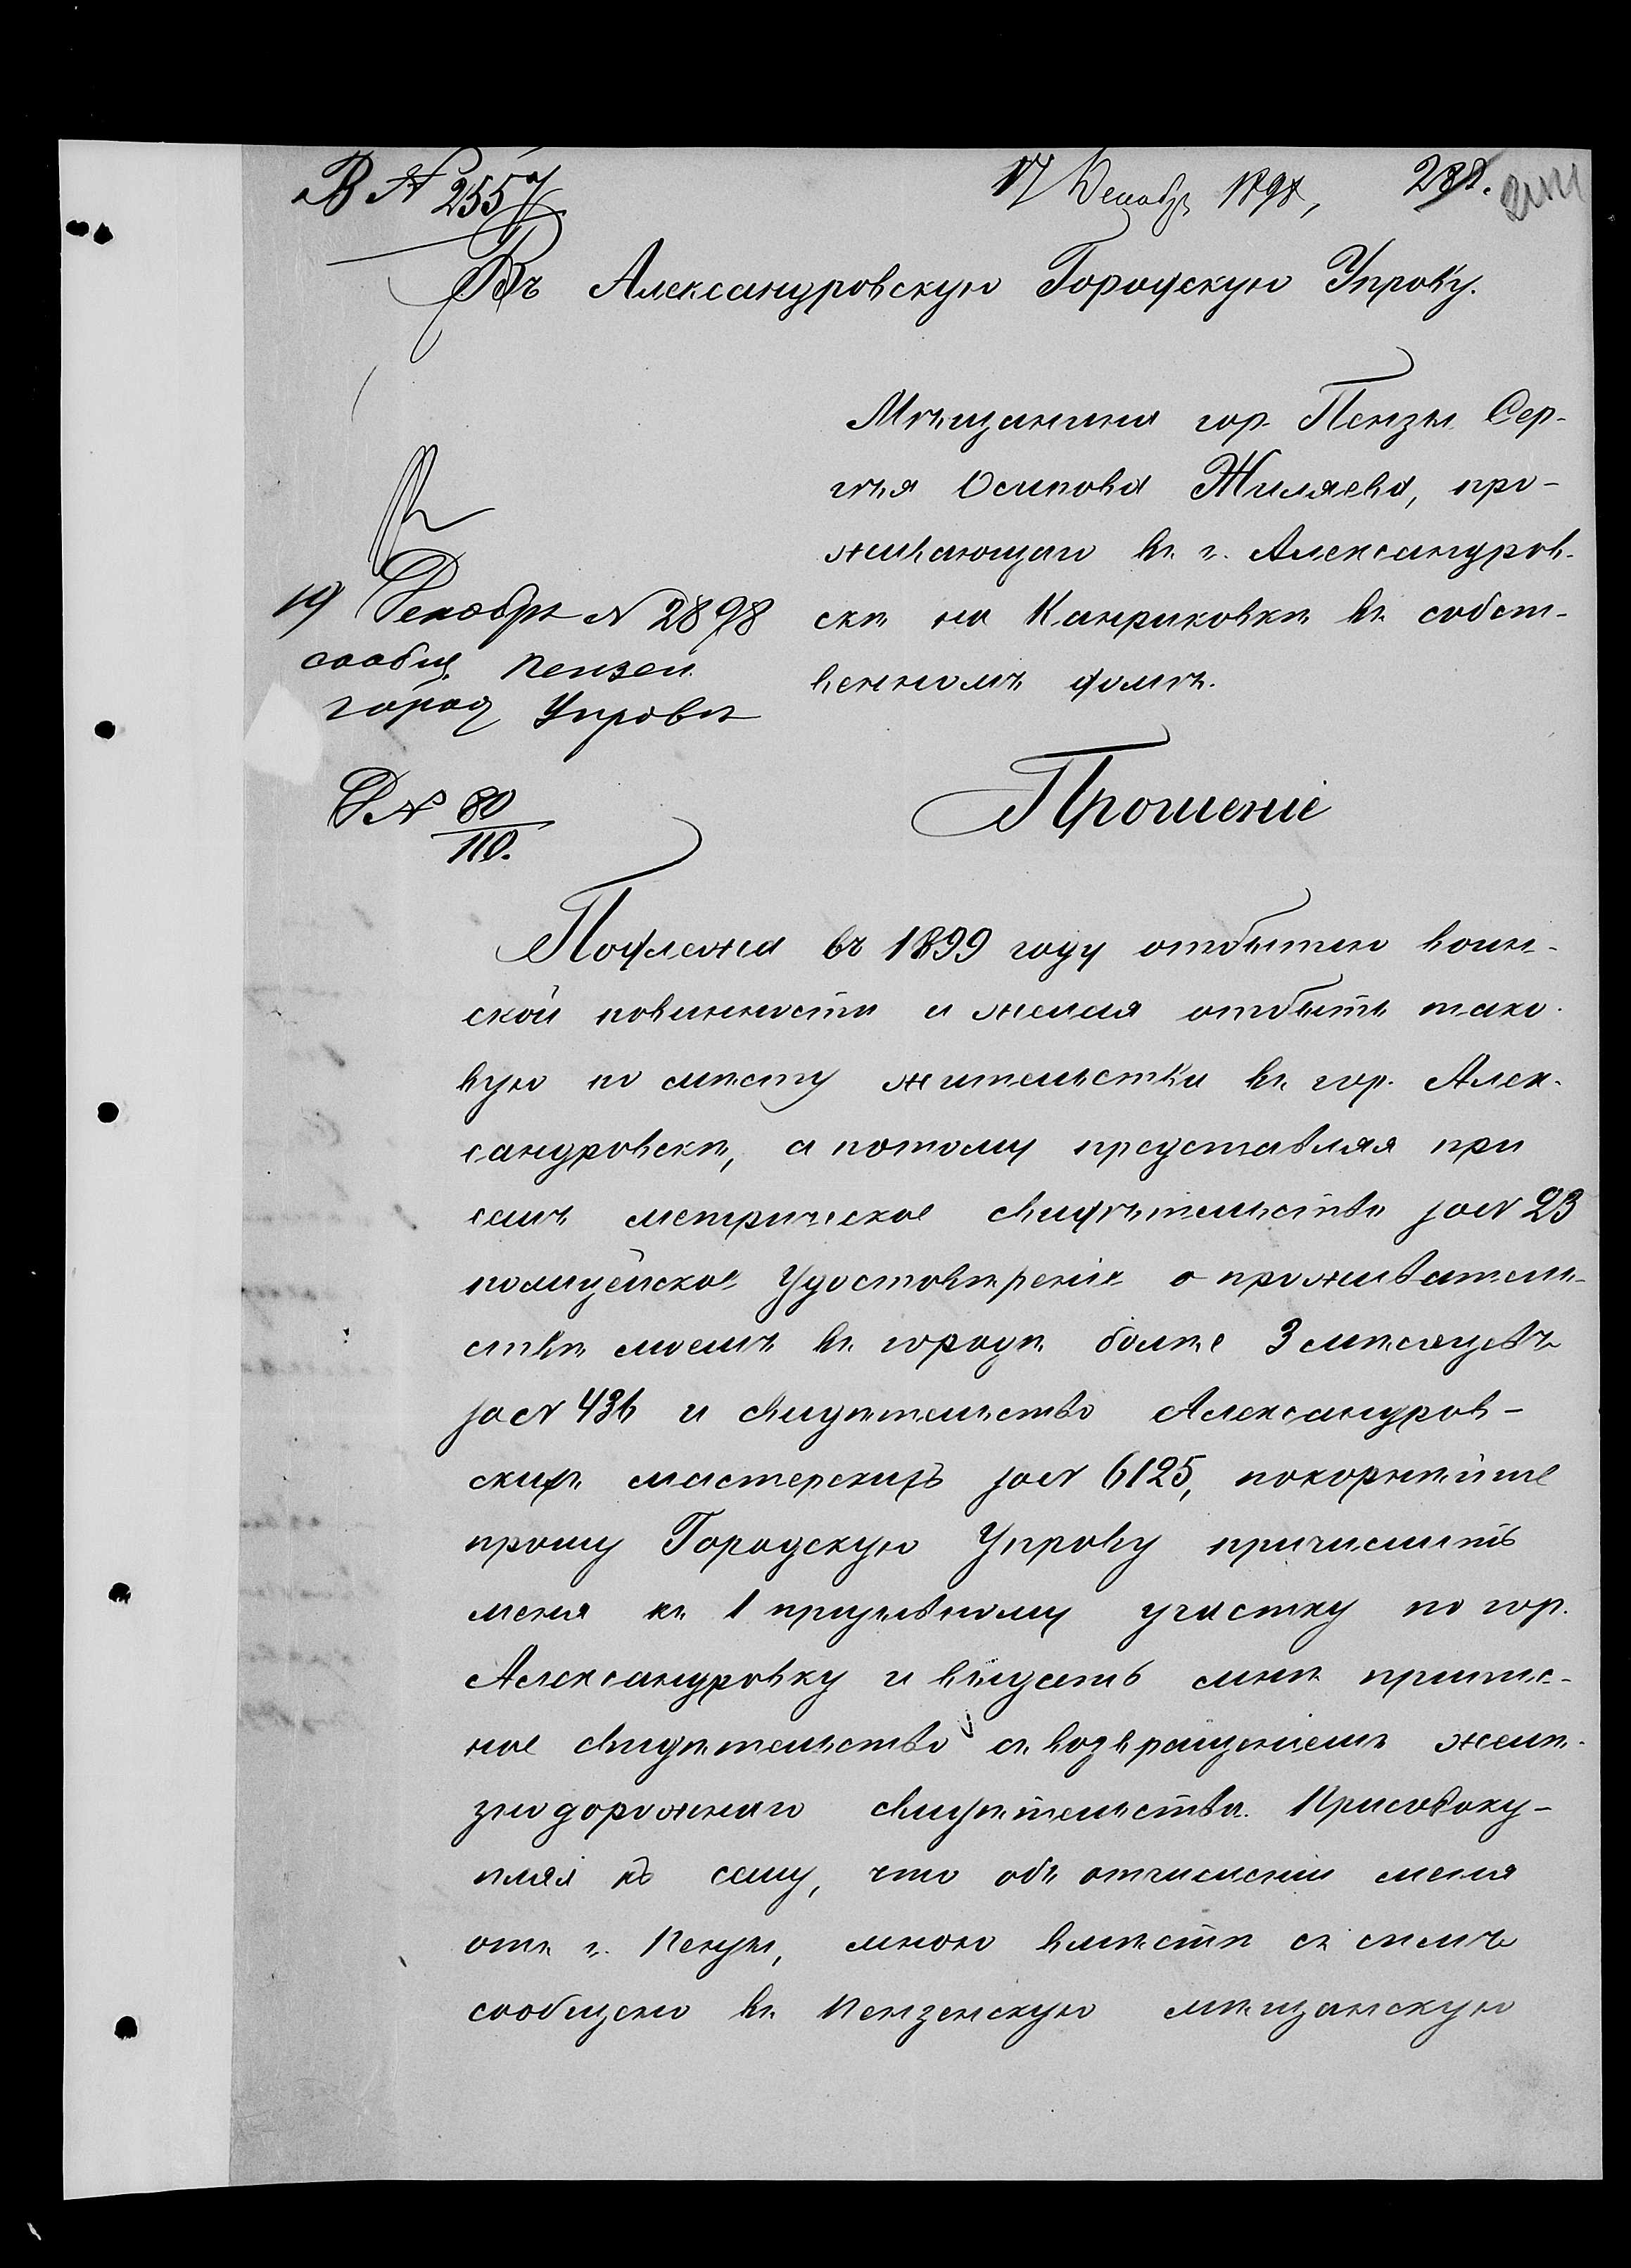 В № 2557
17 Декабр 1898,
Въ Александровскую Городскую Управу.
Мѣщанина гор. Пензы Сер-
гѣя Осипова Жиляева, про-
живающаго въ г. Александров-
скѣ на Канриковкѣ въ собст-
венномъ домѣ.
19 Декабря № 2898
сообщ. Пензен.
город Управѣ
Д № 80
110.
Прошеніе
Подлежа въ 1899 году отбытію воин-
ской повинности и желая отбыть тако-
вую по мѣсту жительства въ гор. Алек-
сандровскѣ, а потому представляя при
семъ метрическое свидѣтельство за № 23
полицейское Удостовѣреніе о прожитель-
ствѣ моемъ въ городѣ болѣе 3 мѣсяцевъ
за № 436 и свидѣтельство Александров-
скихъ мастерскихъ за № 6125, покорнѣйше
прошу Городскую Управу причислить
меня къ 1 призывному участку по гор.
Александровку и выдать мнѣ припис-
ное свидѣтельство съ возвращеніемъ желѣ-
знодорожнаго свидѣтельства. Присовоку-
пляя къ сему, что объ отчисленіи меня
отъ г. Пензы, мною вмѣстѣ съ симъ
сообщено въ Пензенскую мѣщанскую